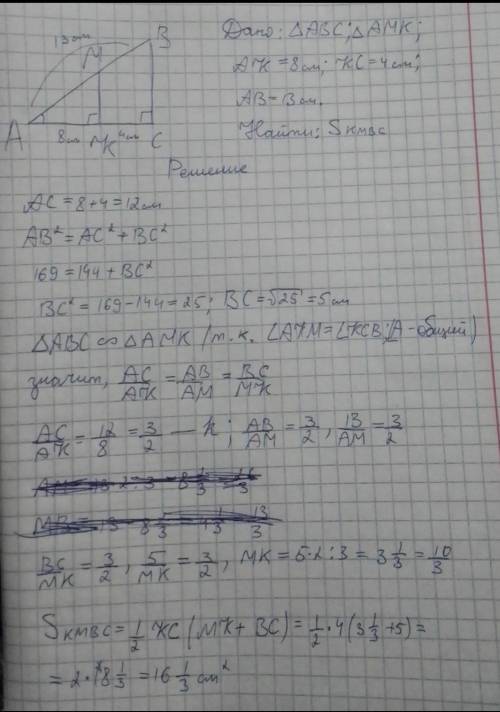 13 см
B
M
A
8 см
K
4 см
C
Дано: △ABC; △AMK;
AK = 8 см; KC = 4 см;
AB = 13 см.
Найти: S KMBC
Решение
AC = 8 + 4 = 12 см
AB² = AC² + BC²
169 = 144 + BC²
BC² = 169 - 144 = 25; BC = √25 = 5 см
△ABC ∾ △AMK /т.к. ∠AKM = ∠KCB; ∠A - общий)
значит, AC/AK = AB/AM = BC/MK
AC/AK = 12/8 = 3/2 — k; AB/AM = 3/2, 13/AM = 3/2
BC/MK = 3/2, 5/MK = 3/2, MK = 5·2:3 = 3 1/3 = 10/3
S KMBC = 1/2 KC (MK + BC) = 1/2 · 4 (3 1/3 + 5) =
= 2 · 8 1/3 = 16 1/3 см²